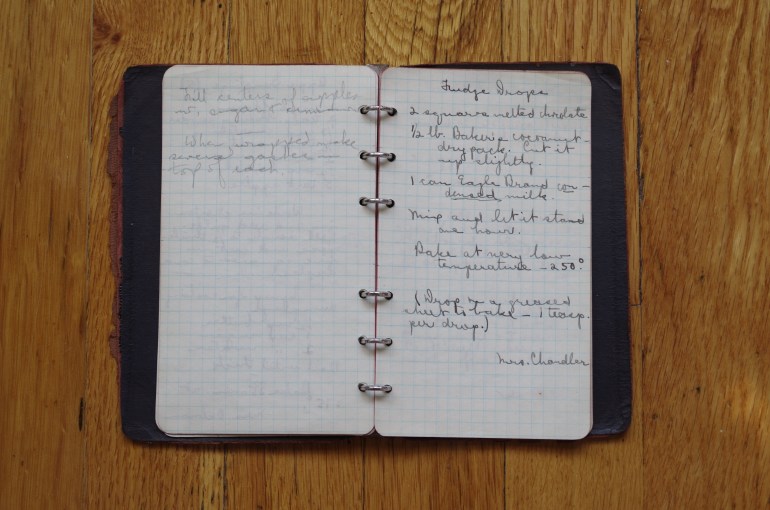 Fill centers
When wrapped make
several gashes
top of each.
Fudge Drops
2 squares melted chocolate
1/2 lb. Baker's cocoanut -
dry pack. Cut it
up slightly.
1 can Eagle Brand con-
densed milk.
Mix and let it stand
one hour.
Bake at very low
temperature - 250°.
(Drop on a greased
sheet to bake - 1 teasp.
per drop.)
Mrs. Chandler